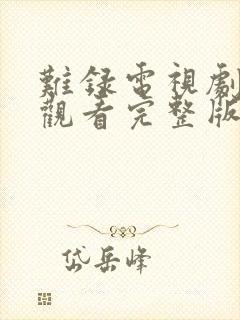 難録電視劇
觀看完整版
岱岳峰